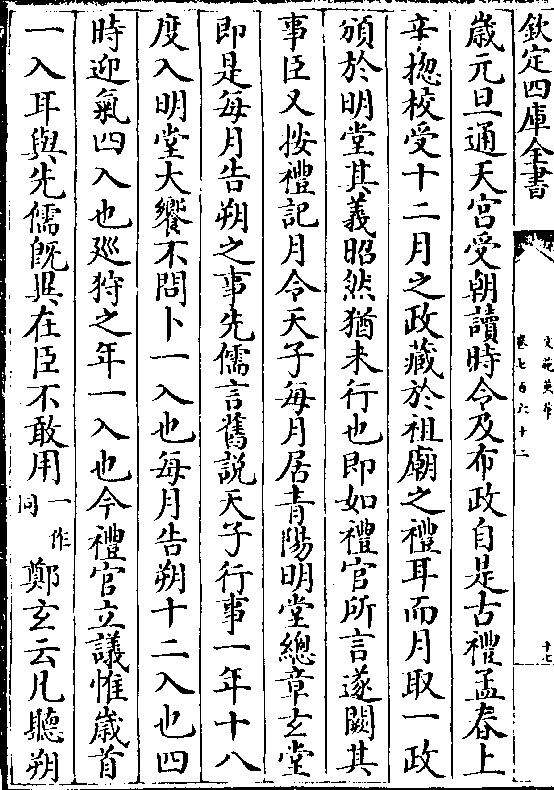 欽定四庫全書
文苑英華
卷七百六十二
十七
歳元旦通天宮受朝讀時令及布政自是古禮孟春上
辛揔校受十二月之政藏於祖廟之禮耳而月取一政
頒於明堂其義昭然猶未行也即如禮官所言遂闕其
事臣又按禮記月令天子每月居青陽明堂總章玄堂
即是每月告朔之事先儒言舊説天子行事一年十八
度入明堂大饗不問卜一入也每月告朔十二入也四
時迎氣四入也廵狩之年一入也今禮官立議惟歳首
一入耳與先儒旣異在臣不敢用一作同鄭玄云凡聽朔